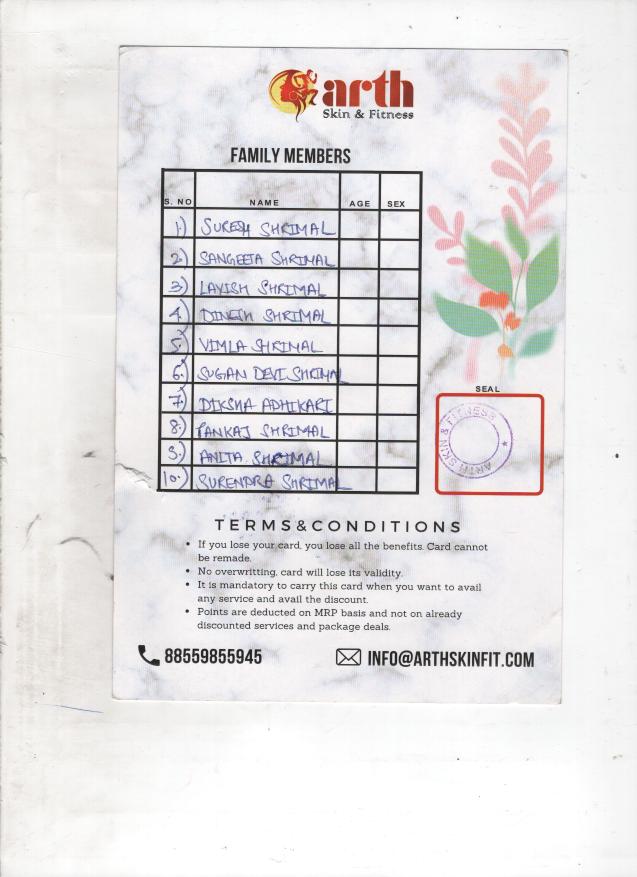 arth
Skin & Fitness
FAMILY MEMBERS
S. NO NAME AGE SEX
1.) SURESH SHRIMAL
2.) SANGEETA SHRIMAL
3.) LAVISH SHRIMAL
4.) DINESH SHRIMAL
5.) VIMLA SHRIMAL
6.) SUGAN DEVI SHRIMAL
7.) DIKSHA ADHIKARI
8.) PANKAJ SHRIMAL
9.) ANITA SHRIMAL
10.) SURENDRA SHRIMAL
SEAL
ARTH SKIN & FITNESS
TERMS & CONDITIONS
• If you lose your card, you lose all the benefits. Card cannot
be remade.
• No overwritting, card will lose its validity.
• It is mandatory to carry this card when you want to avail
any service and avail the discount.
• Points are deducted on MRP basis and not on already
discounted services and package deals.
88559855945
INFO@ARTHSKINFIT.COM